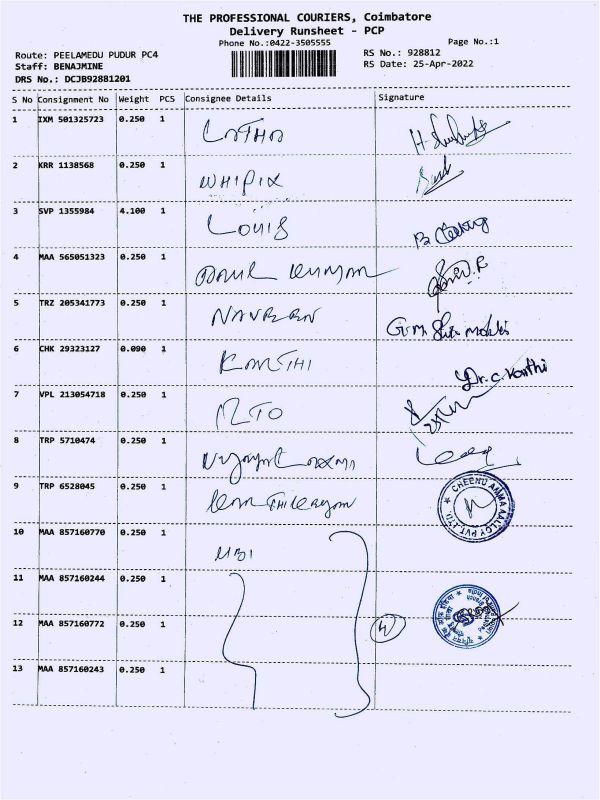 THE PROFESSIONAL COURIERS, Coimbatore
Delivery Runsheet - PCP
Phone No.:0422-3505555
Page No.:1
Route: PEELAMEDU PUDUR PC4
RS No.: 928812
Staff: BENAJMINE
RS Date: 25-Apr-2022
DRS No.: DCJB92881201
S No Consignment No Weight PCS Consignee Details Signature
1 IXM 501325723 0.250 1 LATHA
2 KRR 1138568 0.250 1 WHIPIX
3 SVP 1355984 4.100 1 LOUIS
4 MAA 565051323 0.250 1 KUMAR
5 TRZ 205341773 0.250 1 NAVEEN
6 CHK 29323127 0.090 1 KANTHI Dr. C. Kanthi
7 VPL 213054718 0.250 1 MTO
8 TRP 5710474 0.250 1
9 TRP 6528045 0.250 1
10 MAA 857160770 0.250 1 UBI
11 MAA 857160244 0.250 1
12 MAA 857160772 0.250 1 4
13 MAA 857160243 0.250 1